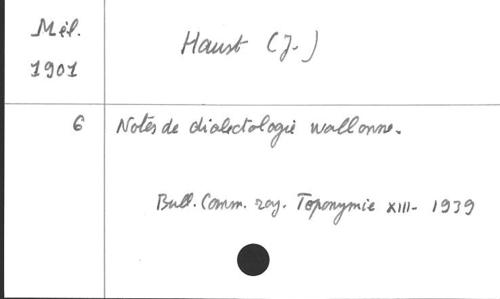 Mél.
1901
Haust (J.)
6
Notes de dialectologie wallonne.
Bull. Comm. roy. Toponymie XIII - 1939